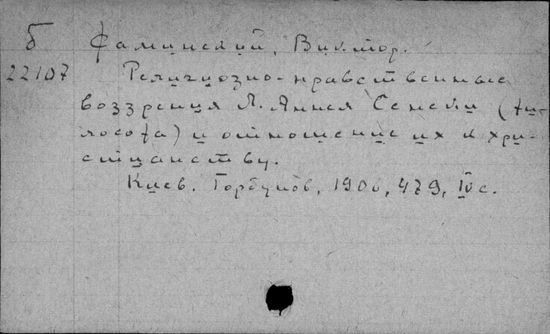 Б Фаминский, Виктор.
22107 Религиозно-нравственные
воззрения Л. Аннея Сенеки (фи-
лософа) и отношение их к хри-
стианству.
Киев. Горбунов, 1906, 479, IVс.